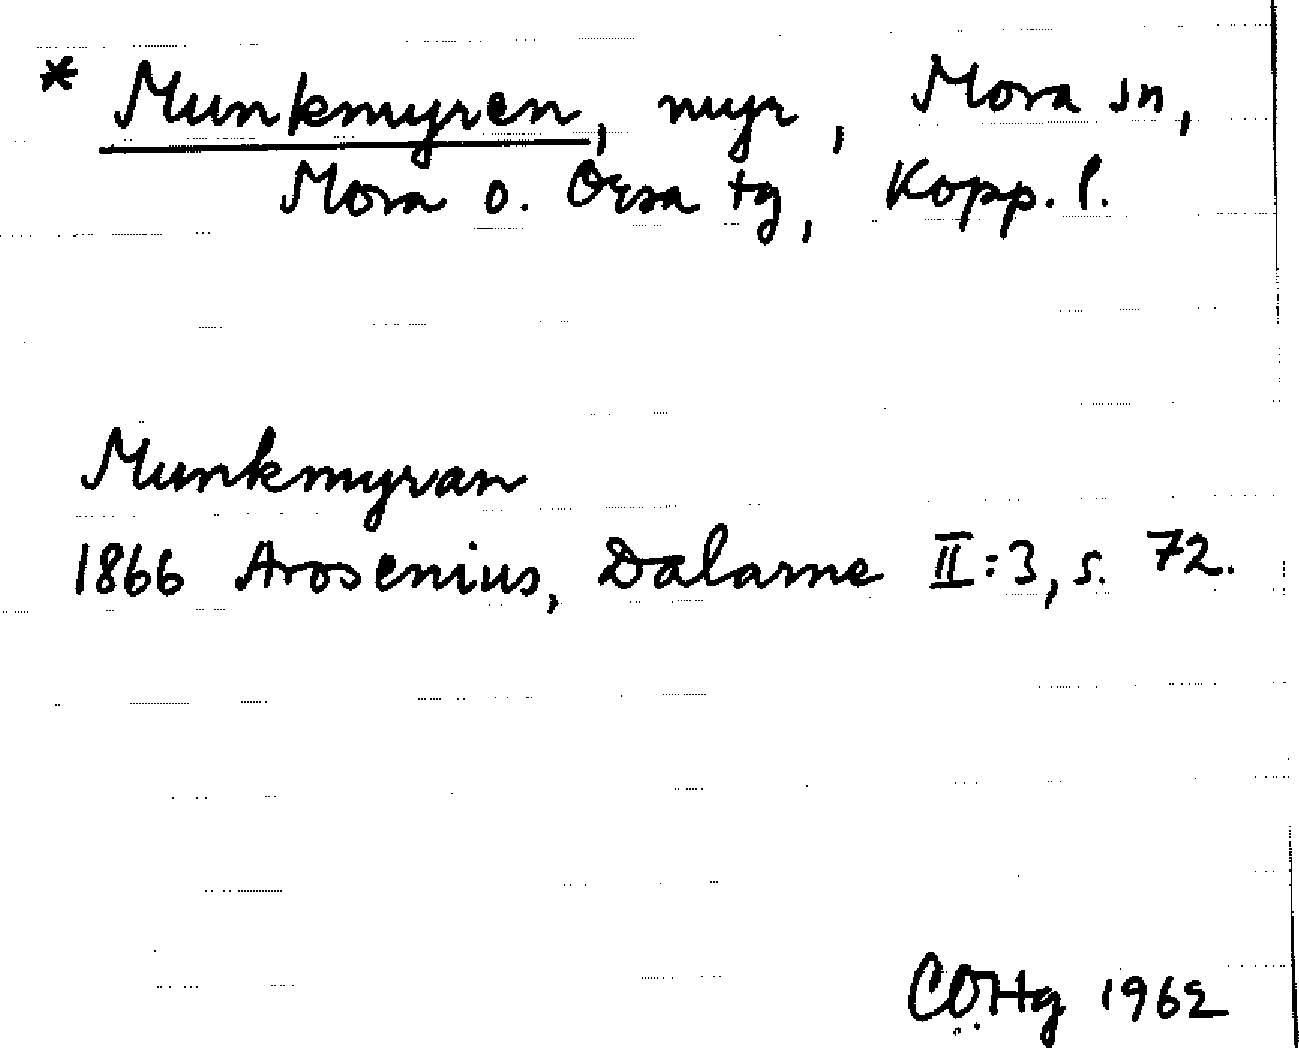 * Munkmyren, myr, Mora sn,
Mora o. Orsa tg, Kopp. l.
Munkmyran
1866 Arosenius, Dalarne II:3, s. 72.
1962